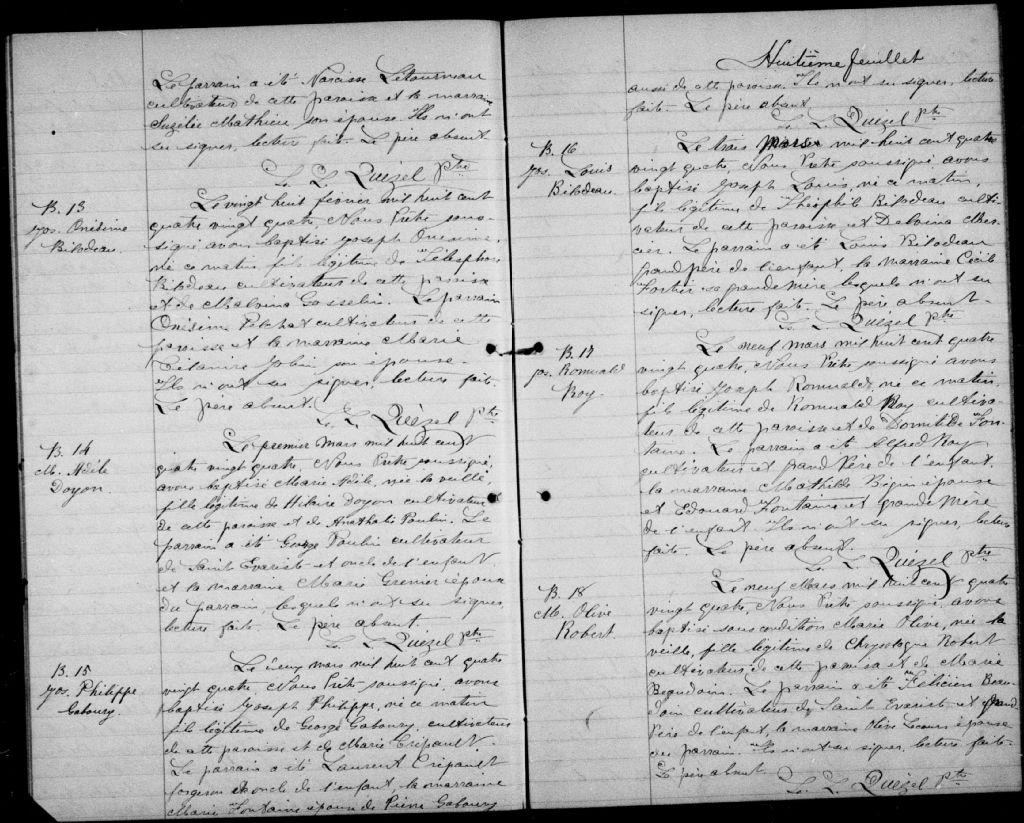 Le parrain a été Narcisse Létourneau
cultivateur de cette paroisse et la marraine
Suzélie Mathieu son épouse. Ils n'ont
su signer, lecture faite. Le père absent
L. L. Quézel Ptre
B. 13
Jos. Onésime
Bilodeau.
Le vingt huit février mil huit cent
quatre vingt quatre, Nous Prêtre sous-
signé avons baptisé Joseph Onésime,
né ce matin, fils légitime de Télesphore
Bilodeau cultivateur de cette paroisse
et de Malvina Gosselin. Le parrain
Onésime cultivateur de cette
paroisse et la marraine Marie
Jobin son épouse.
Ils n'ont su signer, lecture faite.
Le père absent.
L. L. Quézel Ptre
B. 14
M. Adèle
Doyon.
Le premier mars mil huit cent
quatre vingt quatre, Nous Prêtre soussigné,
avons baptisé Marie Adèle, née la veille,
fille légitime de Hilaire Doyon cultivateur
de cette paroisse et de Nathalie Poulin. Le
parrain a été George Poulin cultivateur
de Saint Evariste et oncle de l'enfant
et la marraine Marie Grenier épouse
du parrain, lesquels n'ont su signer,
lecture faite. Le père absent.
L. L. Quézel Ptre
B. 15
Jos. Philippe
Gaboury.
Le deux mars mil huit cent quatre
vingt quatre, Nous Prêtre soussigné, avons
baptisé Joseph Philippe, né ce matin
fils légitime de George Gaboury cultivateur
de cette paroisse et de Marie Crépault.
Le parrain a été Laurent Crépault
forgeron et oncle de l'enfant, la marraine
Marie Fontaine épouse de Pierre Gaboury
Huitième feuillet
aussi de cette paroisse. Ils n'ont su signer, lecture
faite. Le père absent.
L. L. Quézel Ptre
B. 16
Jos. Louis
Bilodeau.
Le trois mars mil huit cent quatre
vingt quatre, Nous Prêtre soussigné avons
baptisé Joseph Louis, né ce matin,
fils légitime de Théophile Bilodeau culti-
vateur de cette paroisse et Delvina Mer-
cier. Le parrain a été Louis Bilodeau
Grand père de l'enfant, la marraine Cécile
Fortier sa grande mère, lesquels n'ont su
signer, lecture faite. Le père absent.
L. L. Quézel Ptre
B. 17
Jos. Romuald
Roy.
Le neuf mars mil huit cent quatre
vingt quatre, Nous Prêtre soussigné avons
baptisé Joseph Romuald, né ce matin,
fils légitime de Romuald Roy cultiva-
teur de cette paroisse et de Domitilde Fon-
taine. Le parrain a été Alfred Roy
cultivateur et grand Père de l'enfant,
la marraine Mathilde Bégin épouse
et Edouard Fontaine et grande Mère
de l'enfant Ils n'ont su signer, lecture
faite. Le père absent.
L. L. Quézel Ptre
B. 18
M. Olive
Robert.
Le neuf Mars mil huit cent quatre
vingt quatre, Nous Prêtre soussigné, avons
baptisé sous condition Marie Olive, née la
veille, fille légitime de Chrysologue Robert
cultivateur de cette paroisse et de Marie
Beaudoin. Le parrain a été Félicien Beau-
doin cultivateur de Saint Evariste et grand
Père de l'enfant, la marraine Olive épouse
du parrain. Ils n'ont su signer, lecture faite.
Le père absent.
L. L. Quézel Ptre